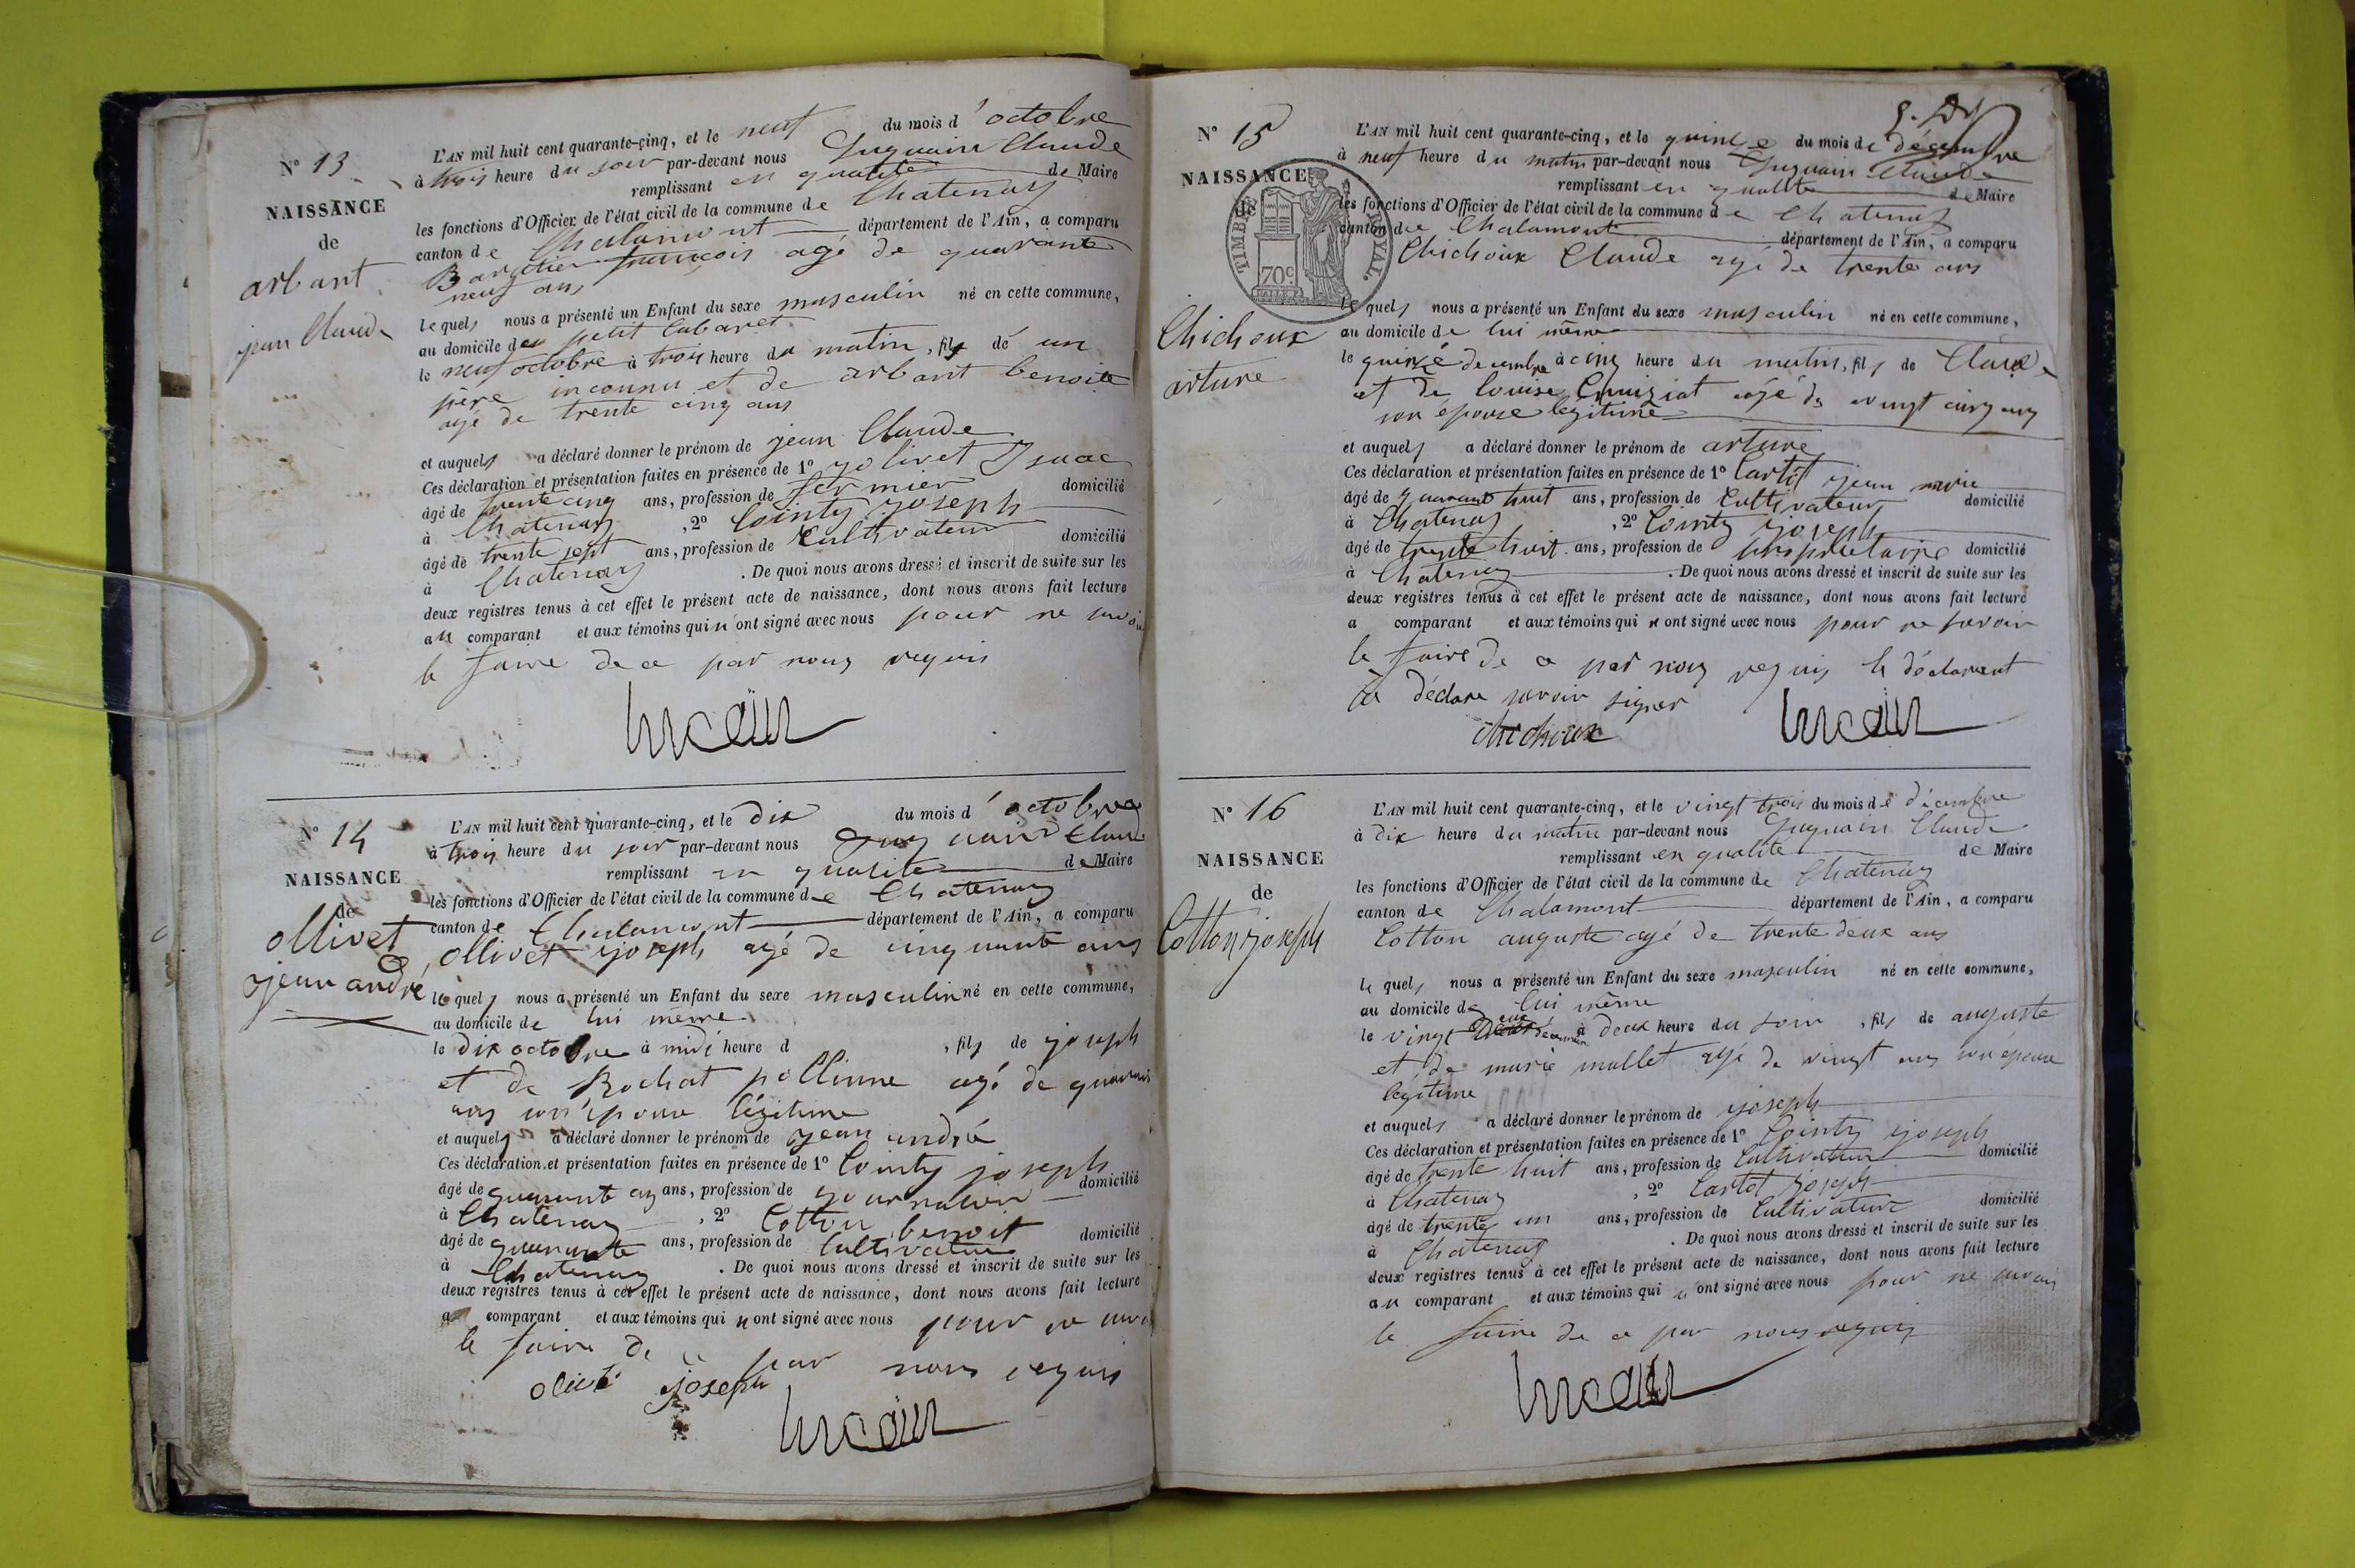 N° 13
NAISSANCE
de
arbant
jean Claude
L'AN mil huit cent quarante-cinq, et le neuf du mois d'octobre
à trois heure du soir par-devant nous Claude
remplissant en qualité de Maire
les fonctions d'Officier de l'état civil de la commune de Chatenay
canton de Chalamont département de l'Ain, a comparu
françois agé de quarante
neuf ans
lequel nous a présenté un Enfant du sexe masculin né en cette commune,
au domicile petit Cabaret
le neuf octobre à trois heure du matin, fils de un
père inconnu et de arbant benoite
agé de trente cinq ans
et auquel a déclaré donner le prénom de jean Claude
Ces déclaration et présentation faites en présence de 1°
âgé de trente cinq ans, profession de fermier domicilié
à Chatenay , 2° Cointy joseph
âgé de trente sept ans, profession de Cultivateur domicilié
à Chatenay . De quoi nous avons dressé et inscrit de suite sur les
deux registres tenus à cet effet le présent acte de naissance, dont nous avons fait lecture
au comparant et aux témoins qui n'ont signé avec nous pour ne
le faire de ce par nous requis
N° 14
NAISSANCE
de
ollivet
jean andré
L'AN mil huit cent quarante-cinq, et le dix du mois d'octobre
à trois heure du soir par-devant nous
remplissant en qualité de Maire
les fonctions d'Officier de l'état civil de la commune de Chatenay
canton de Chalamont département de l'Ain, a comparu
ollivet joseph agé de cinquante ans
lequel nous a présenté un Enfant du sexe masculin né en cette commune,
au domicile de lui meme
le dix octobre à midi heure d , fils de joseph
et de Rochat pollinne agé de
ans son épouse légitime
et auquel a déclaré donner le prénom de jean andré
Ces déclaration et présentation faites en présence de 1° Cointy joseph
âgé de quarante ans, profession de domicilié
à Chatenay , 2° Cotton benoit
âgé de quarante ans, profession de Cultivateur domicilié
à Chatenay . De quoi nous avons dressé et inscrit de suite sur les
deux registres tenus à cet effet le présent acte de naissance, dont nous avons fait lecture
au comparant et aux témoins qui n ont signé avec nous pour ne
le faire de ce par nous requis
joseph
N° 15
NAISSANCE
de
TIMBRE ROYAL
70c
Chichoux
arture
L'AN mil huit cent quarante-cinq, et le quinze du mois de décembre
à neuf heure du matin par-devant nous Claude
remplissant en qualité de Maire
les fonctions d'Officier de l'état civil de la commune de Chatenay
canton de Chalamont département de l'Ain, a comparu
Chichoux Claude agé de trente ans
lequel nous a présenté un Enfant du sexe masculin né en cette commune,
au domicile de lui même
le quinze decembre à cinq heure du matin, fils de Claude
et de louise agé de vingt cinq ans
son épouse légitime
et auquel a déclaré donner le prénom de arture
Ces déclaration et présentation faites en présence de 1° Cartot jean marie
âgé de quarante huit ans, profession de Cultivateur domicilié
à Chatenay , 2° Cointy joseph
âgé de trente huit ans, profession de propriétaire domicilié
à Chatenay . De quoi nous avons dressé et inscrit de suite sur les
deux registres tenus à cet effet le présent acte de naissance, dont nous avons fait lecture
a comparant et aux témoins qui n ont signé avec nous pour ne savoir
le faire de ce par nous requis le déclarant
a déclare savoir signer
chichoux
N° 16
NAISSANCE
de
Cotton joseph
L'AN mil huit cent quarante-cinq, et le vingt trois du mois de décembre
à dix heure du matin par-devant nous Claude
remplissant en qualité de Maire
les fonctions d'Officier de l'état civil de la commune de Chatenay
canton de Chalamont département de l'Ain, a comparu
Cotton auguste agé de trente deux ans
lequel nous a présenté un Enfant du sexe masculin né en cette commune,
au domicile de lui même
le vingt à deux heure du soir , fils de auguste
et de marie mallet agé de vingt ans son épouse
légitime
et auquel a déclaré donner le prénom de joseph
Ces déclaration et présentation faites en présence de 1° Cointy joseph
âgé de trente huit ans, profession de Cultivateur domicilié
à Chatenay , 2° Cartot joseph
âgé de trente un ans, profession de Cultivateur domicilié
à Chatenay . De quoi nous avons dressé et inscrit de suite sur les
deux registres tenus à cet effet le présent acte de naissance, dont nous avons fait lecture
au comparant et aux témoins qui n'ont signé avec nous pour ne savoir
le faire de ce par nous requis